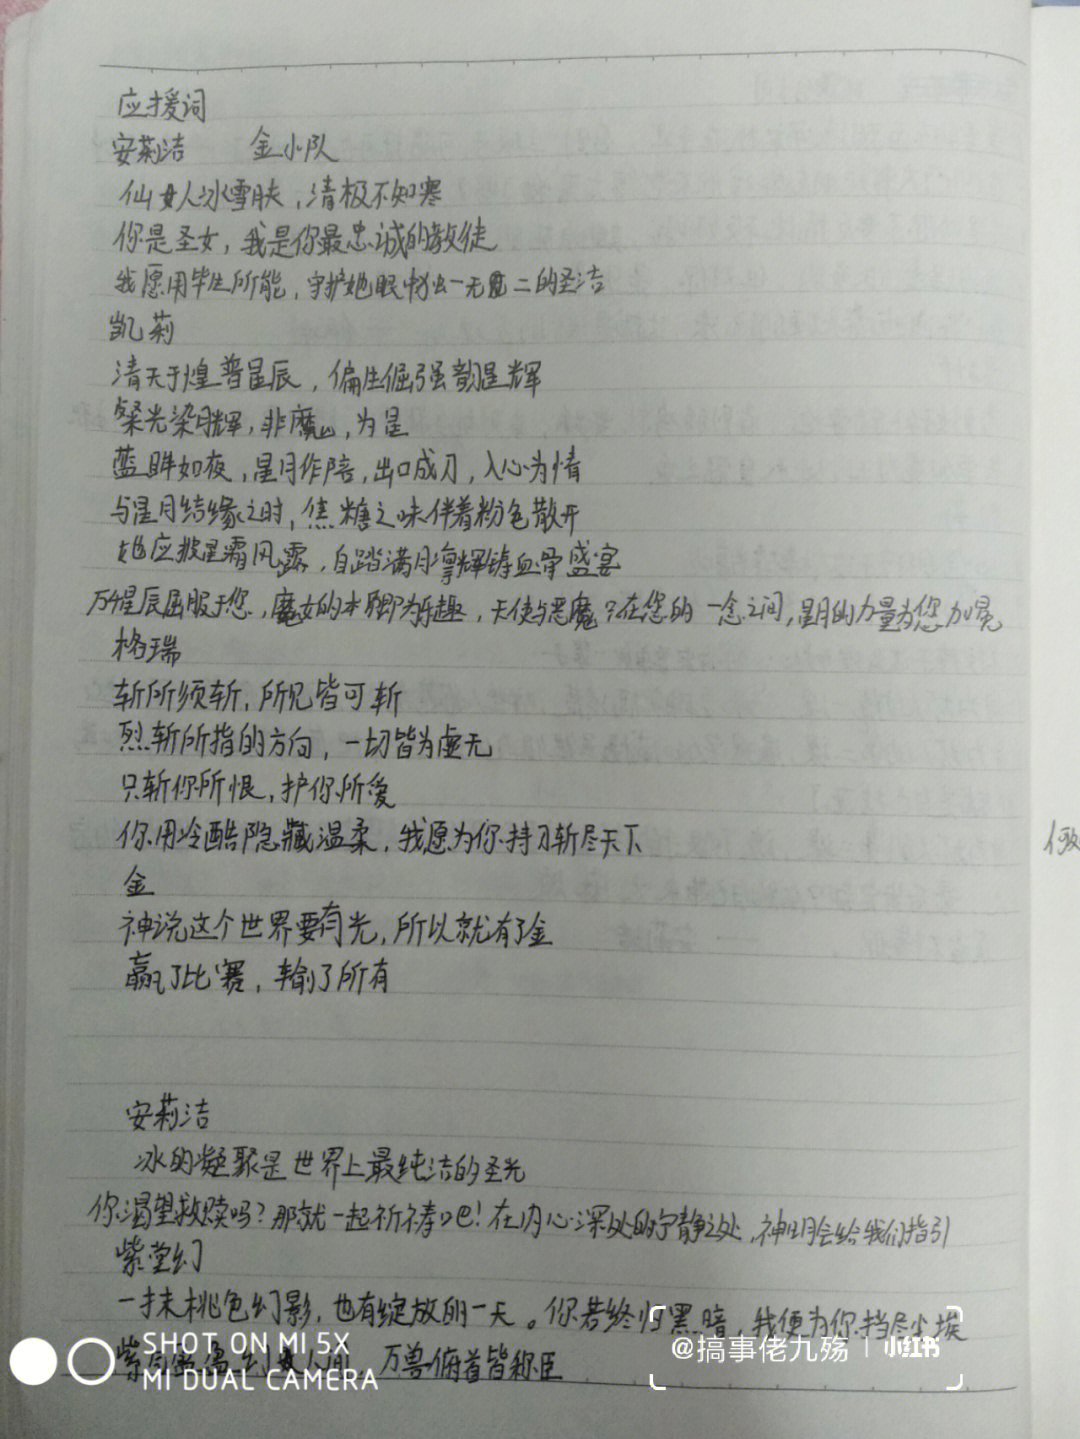 应援词
安莉洁 金小队
仙女人冰雪肤，清极不知寒
你是圣女，我是你最忠诚的教徒
我愿用毕生所能，守护她眼中独一无二的圣洁
凯莉
清天于煌普星辰，偏生倔强韵星辉
粲光染月辉，非魔，为星
蓝眸如夜，星月作陪，出口成刀，入心为情
与星月结缘之时，焦糖之味伴着粉色散开
她应披星霜风露，自踏满月凛辉铸血骨盛宴
万千星辰屈服于您，魔女的本即为乐趣，天使与恶魔？在您的一念之间，星月的力量为您加冕
格瑞
斩所须斩，所见皆可斩
烈斩所指的方向，一切皆为虚无
只斩你所恨，护你所爱
你用冷酷隐藏温柔，我愿为你持刀斩尽天下
金
神说这个世界要有光，所以就有了金
赢了比赛，输了所有
安莉洁
冰的凝聚是世界上最纯洁的圣光
你渴望救赎吗？那就一起祈祷吧！在内心深处的宁静之处，神明会给我们指引
紫堂幻
一抹桃色幻影，也有绽放的一天。你若终归黑暗，我便为你挡尽尘埃
紫 人间，万兽俯首皆称臣
何敢
SHOT ON MI 5X
MI DUAL CAMERA
@搞事佬九殇 | 小红书